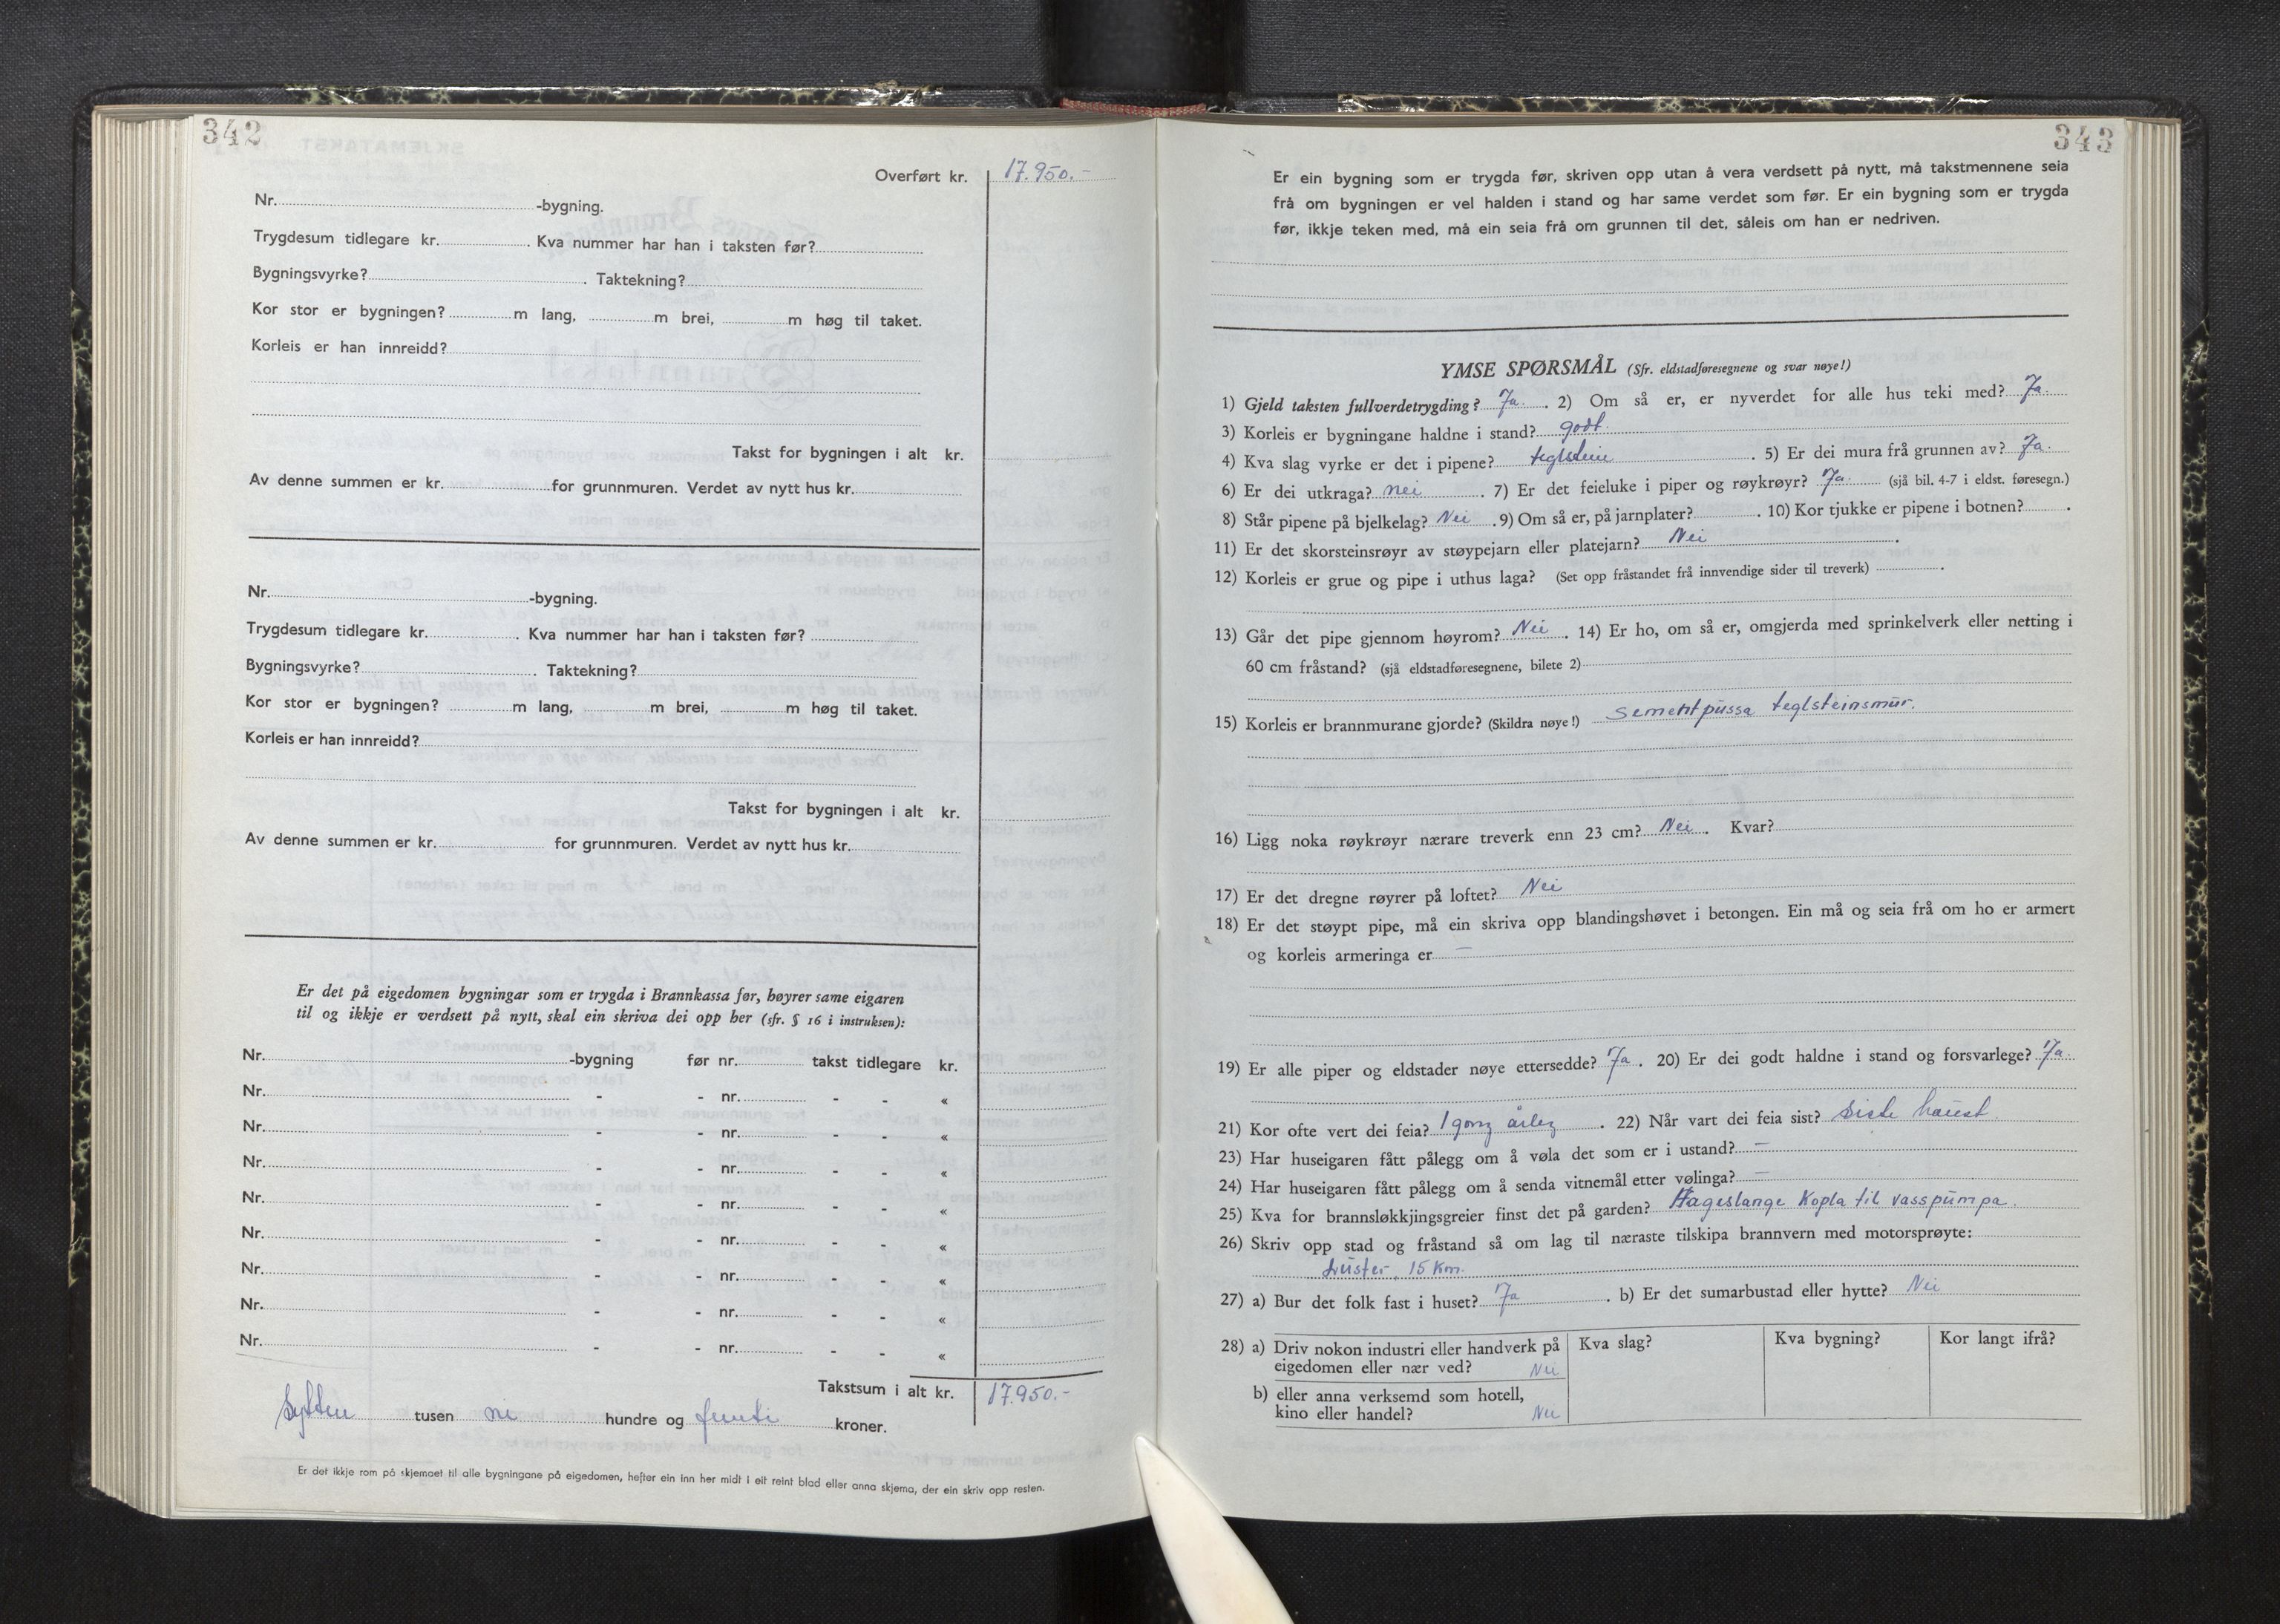 342
Overført kr. 17.950.-
Nr. -bygning.
Trygdesum tidlegare kr. . Kva nummer har han i taksten før?
Bygningsvyrke? . Taktekning?
Kor stor er bygningen? m lang, m brei, m høg til taket.
Korleis er han innreidd?
Takst for bygningen i alt kr.
Av denne summen er kr. for grunnmuren. Verdet av nytt hus kr.
Nr. -bygning.
Trygdesum tidlegare kr. . Kva nummer har han i taksten før?
Bygningsvyrke? . Taktekning?
Kor stor er bygningen? m lang, m brei, m høg til taket.
Korleis er han innreidd?
Takst for bygningen i alt kr.
Av denne summen er kr. for grunnmuren. Verdet av nytt hus kr.
Er det på eigedomen bygningar som er trygda i Brannkassa før, høyrer same eigaren
til og ikkje er verdsett på nytt, skal ein skriva dei opp her (sfr. § 16 i instruksen):
Nr. -bygning før nr. takst tidlegare kr.
Nr. - - nr. - - «
Nr. - - nr. - - «
Nr. - - nr. - - «
Nr. - - nr. - - «
Nr. - - nr. - - «
Nr. - - nr. - - «
Nr. - - nr. - - «
Nr. - - nr. - - «
Takstsum i alt kr. 17.950.-
Sytten tusen ni hundre og femti kroner.
Er det ikkje rom på skjemaet til alle bygningane på eigedomen, hefter ein inn her midt i eit reint blad eller anna skjema, der ein skriv opp resten.
343
Er ein bygning som er trygda før, skriven opp utan å vera verdsett på nytt, må takstmennene seia
frå om bygningen er vel halden i stand og har same verdet som før. Er ein bygning som er trygda
før, ikkje teken med, må ein seia frå om grunnen til det, såleis om han er nedriven.
YMSE SPØRSMÅL (Sfr. eldstadføresegnene og svar nøye!)
1) Gjeld taksten fullverdetrygding? Ja. . 2) Om så er, er nyverdet for alle hus teki med? Ja.
3) Korleis er bygningane haldne i stand? godt.
4) Kva slag vyrke er det i pipene? teglstein . 5) Er dei mura frå grunnen av? Ja.
6) Er dei utkraga? nei . 7) Er det feieluke i piper og røykrøyr? Ja. (sjå bil. 4-7 i eldst. føresegn.)
8) Står pipene på bjelkelag? Nei . 9) Om så er, på jarnplater? . 10) Kor tjukke er pipene i botnen? .
11) Er det skorsteinsrøyr av støypejarn eller platejarn? Nei .
12) Korleis er grue og pipe i uthus laga? (Set opp fråstandet frå innvendige sider til treverk) .
13) Går det pipe gjennom høyrom? Nei . 14) Er ho, om så er, omgjerda med sprinkelverk eller netting i
60 cm fråstand? (sjå eldstadføresegnene, bilete 2)
15) Korleis er brannmurane gjorde? (Skildra nøye!) Sementpussa teglsteinsmur.
16) Ligg noka røykrøyr nærare treverk enn 23 cm? Nei . Kvar?
17) Er det dregne røyrer på loftet? Nei
18) Er det støypt pipe, må ein skriva opp blandingshøvet i betongen. Ein må og seia frå om ho er armert
og korleis armeringa er —
19) Er alle piper og eldstader nøye ettersedde? Ja . 20) Er dei godt haldne i stand og forsvarlege? Ja.
21) Kor ofte vert dei feia? 1 gong årleg . 22) Når vart dei feia sist? Siste haust.
23) Har huseigaren fått pålegg om å vøla det som er i ustand? —
24) Har huseigaren fått pålegg om å senda vitnemål etter vølinga? —
25) Kva for brannsløkkjingsgreier finst det på garden? Hageslange kopla til vasspumpa.
26) Skriv opp stad og fråstand så om lag til næraste tilskipa brannvern med motorsprøyte:
Luster, 15 km.
27) a) Bur det folk fast i huset? Ja . b) Er det sumarbustad eller hytte? Nei
28) a) Driv nokon industri eller handverk på Kva slag? Kva bygning? Kor langt ifrå?
eigedomen eller nær ved? Nei
b) eller anna verksemd som hotell,
kino eller handel? Nei